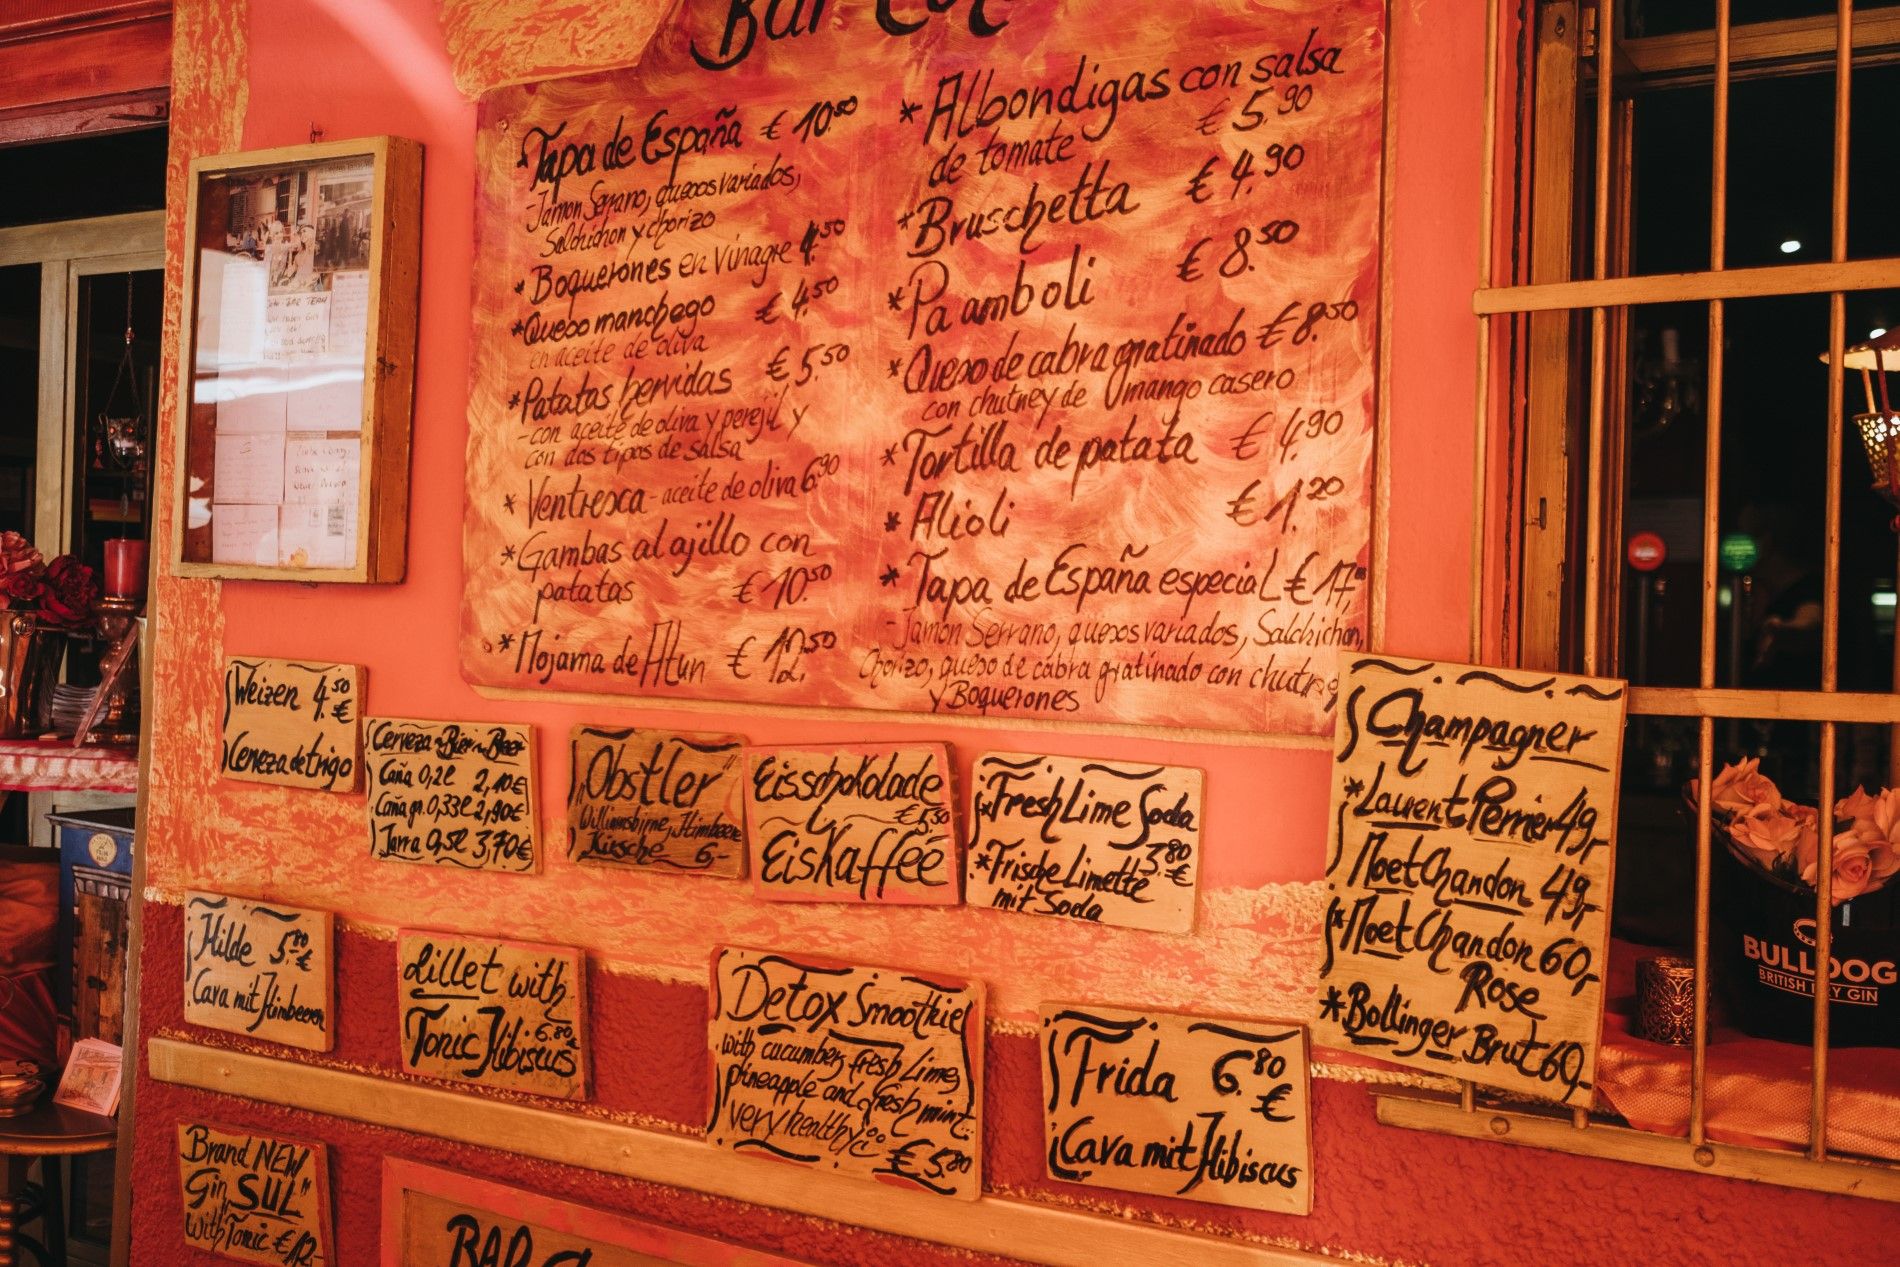 Bar
*Tapa de España € 10.50
-Jamon Serrano, quesos variados,
Salchichon y chorizo
*Boquerones en Vinagre 4.50
*Queso manchego € 4.50
en aceite de oliva
*Patatas hervidas € 5.50
-con aceite de oliva y perejil y
con dos tipos de salsa
*Ventresca - aceite de oliva 6.90
*Gambas al ajillo con
patatas € 10.50
*Mojama de Atun € 12.50
*Albondigas con salsa
de tomate € 5.90
*Bruschetta € 4.90
*Pa amboli € 8.50
*Queso de cabra gratinado € 8.50
con chutney de mango casero
*Tortilla de patata € 4.90
*Alioli € 1.20
*Tapa de España especial € 17,00
-Jamon Serrano, quesos variados, Salchichon,
Chorizo, queso de cabra gratinado con chutney
y Boquerones
Weizen 4.50 €
Cerveza de trigo
Cerveza ~ Bier ~ Beer
Caña 0,2l 2,10€
Caña gr. 0,33l 2,90€
Jarra 0,5l 3,70€
„Obstler"
Williamsbirne, Himbeere
Kirsche 6,-
Eisschokolade
€ 5,50
Eiskaffee
*Fresh Lime Soda
3.80 €
*Frische Limette
mit Soda
Champagner
*Laurent Perrier 49,-
Moet Chandon 49,-
*Moet Chandon 60,-
Rose
*Bollinger Brut 60,-
Hilde 5.80 €
Cava mit Himbeeren
Lillet with
Tonic Hibiscus 6.80€
Detox Smoothie
with cucumber, fresh Lime,
pineapple and fresh mint..
very healthy
€ 5.80
Frida 6.80 €
Cava mit Hibiscus
BULLDOG
BRITISH DRY GIN
Brand NEW
Gin „SUL"
with Tonic € 12,-
BAR